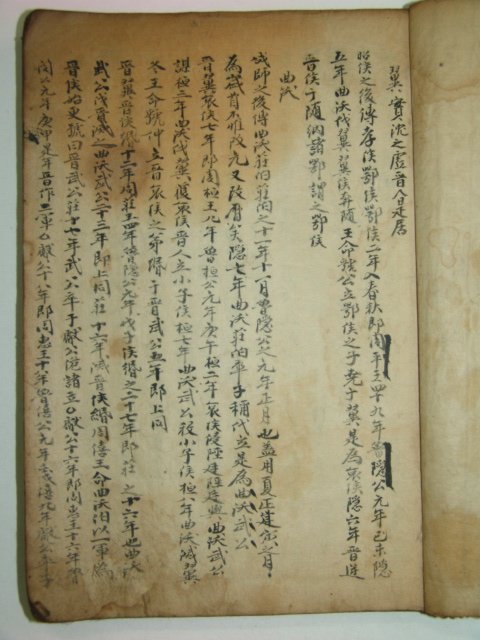 翼 實沈之虛晉人是居
昭侯之後傳孝侯鄂侯鄂侯二年入春秋即周平王四十九年魯隱公元年己未隱
五年曲沃伐翼翼侯奔隨王命虢公立鄂侯之子光于翼是為哀侯隱六年晉逆
晉侯于隨納諸鄂謂之鄂侯
曲沃
城師之後傳曲沃莊伯莊伯之十一年十一月魯隱公之元年正月也盖用夏正建寅之月
為歲首不雅改元又改曆矣隱七年曲沃莊伯卒子稱代立是為曲沃武公
晉翼哀侯七年即周桓王九年魯桓公元年庚午桓二年哀侯侵陘庭陘庭與曲沃武公
謀桓三年曲沃伐翼獲哀侯晉人立小子侯桓七年曲沃武公殺小子侯桓八年曲沃滅翼
冬王命虢仲立晉哀侯之弟緡于晉武公五年即上同
晉翼晉侯緡十二年周莊王四年魯隱公元年戊子侯緡之二十七年即莊之十六年也曲沃
武公伐晉滅之曲沃武公二十三年即上同莊十六年滅晉侯緡周僖王命曲沃伯以一軍為
晉侯始更號曰晉武公莊十七年武公卒子獻公詭諸立獻公十六年即周惠王十六年魯
閔公元年庚申是年晉作二軍獻公十八年即周惠王十八年魯僖公元年壬戌僖九年獻公卒子